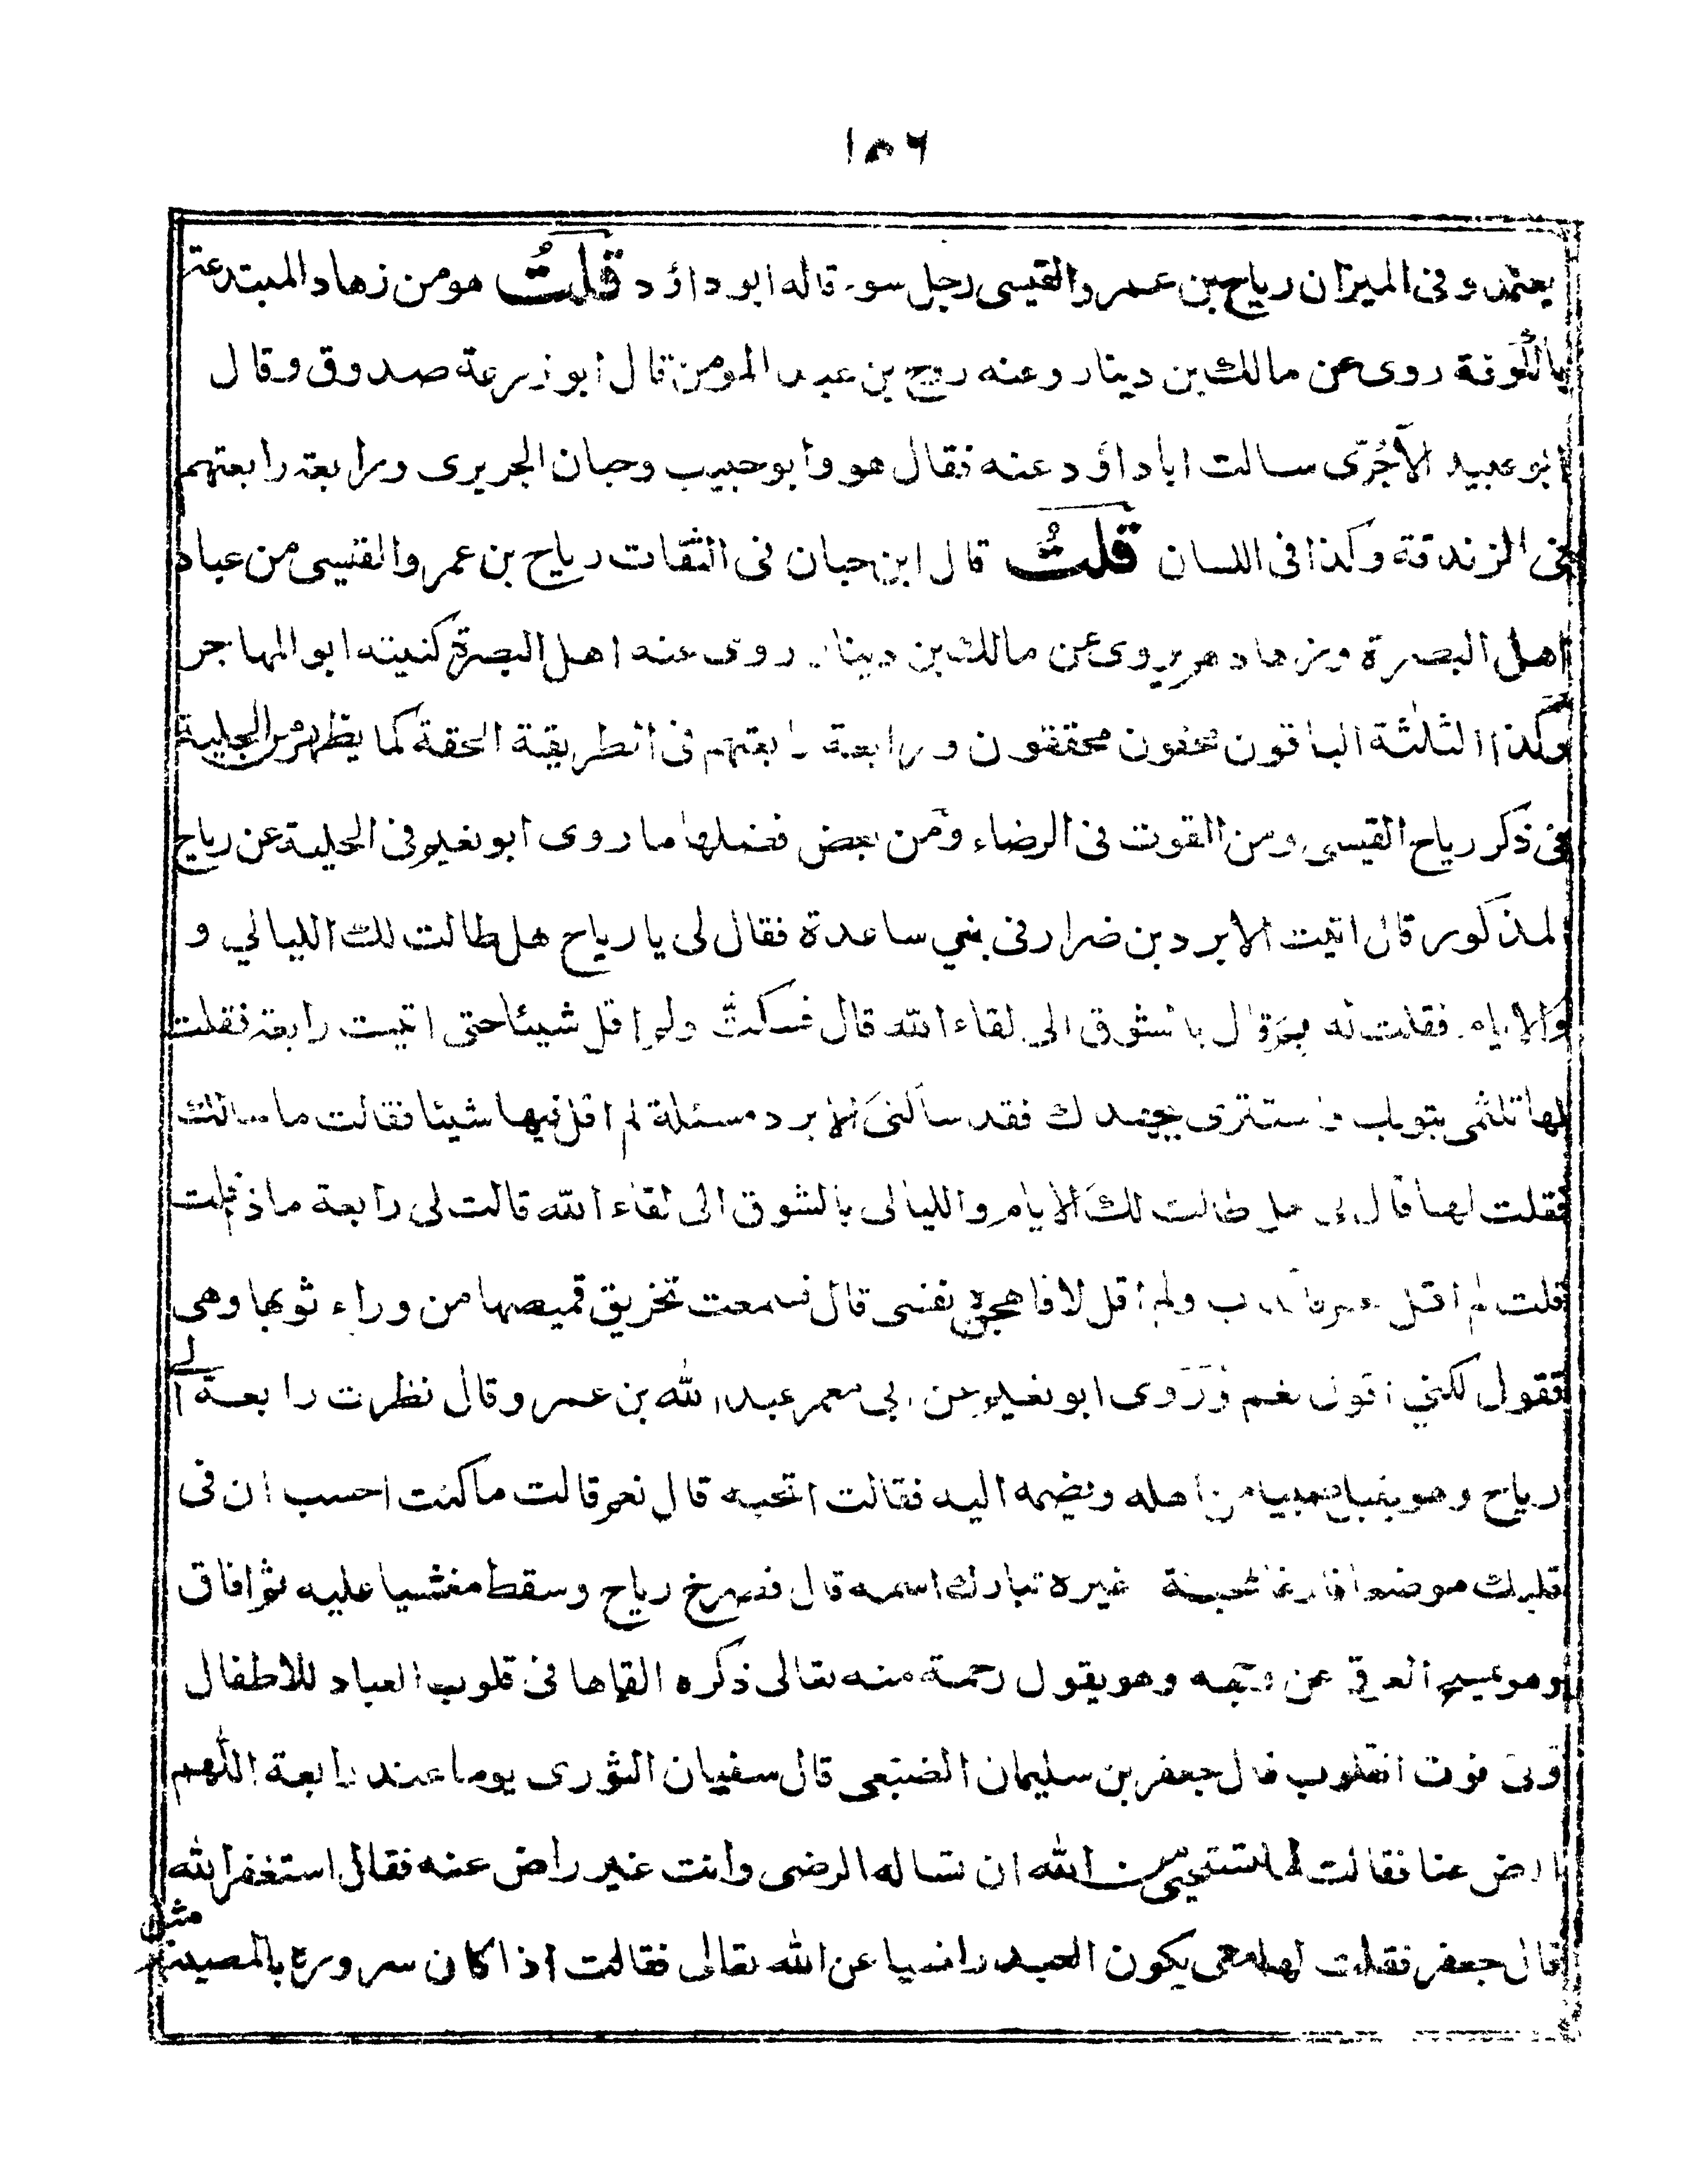 ١٥٦
يعتمد وفى الميزان رياح بن عمرو القيسى رجل سوء قاله ابو داؤد قلتُ هو من زهاد المبتدعة
بالكوفة روى عن مالك بن دينار وعنه روح بن عبد المومن قال ابو زرعة صدوق وقال
ابو عبيد الآجُرّى سالت ابا داؤد عنه فقال هو وابو حبيب وحبان الجريرى ورابعة رابعتهم
فى الزندقة وكذا فى اللسان قلتُ قال ابن حبان فى الثقات رياح بن عمرو القيسى من عباد
اهل البصرة وزهادهم يروى عن مالك بن دينار روى عنه اهل البصرة كنيته ابو المهاجر
وكذا الثلثة الباقون محققون ورابعة رابعتهم فى الطريقة الحقة كما يظهر من الحلية
فى ذكر رياح القيسى ومن القوت فى الرضاء ومن بعض فضلها ما روى ابو نعيم فى الحلية عن رياح
المذكور قال اتيت الابرد بن ضرار فى بني ساعدة فقال لى يا رياح هل طالت لك الليالي و
والايام فقلت له بالشوق الى لقاء الله قال فسكتُّ ولم اقل شيئا حتى اتيت رابعة فقلت
لها تلثمى بثوبك واستترى بجهدك فقد سألنى الابرد مسئلة لم اقل فيها شيئا فقالت ما سالك
فقلت لها قال لى هل طالت لك الايام والليالى بالشوق الى لقاء الله قالت لى رابعة ماذا قلت
قلت لم اقل ولم اقل لا فاهجن نفسى قال فسمعت تخريق قميصها من وراء ثوبها وهى
تقول لكني اقول نعم وروى ابو نعيم عن ابى معمر عبد الله بن عمرو قال نظرت رابعة الى
رياح وهو يقبل صبيا من اهله ويضمه اليه فقالت اتحبه قال نعم قالت ما كنت احسب ان فى
قلبك موضعا فارغا لمحبة غيره تبارك اسمه قال فصرخ رياح وسقط مغشيا عليه ثم افاق
وهو يمسح العرق عن وجهه وهو يقول رحمة منه تعالى ذكره القاها فى قلوب العباد للاطفال
وفى قوت القلوب قال جعفر بن سليمان الضبعى قال سفيان الثورى يوما عند رابعة اللهم
ارض عنا فقالت اما تستحيى من الله ان تساله الرضى وانت غير راض عنه فقال استغفر الله
قال جعفر فقلت لها متى يكون العبد راضيا عن الله تعالى فقالت اذا كان سروره بالمصيبة مثل